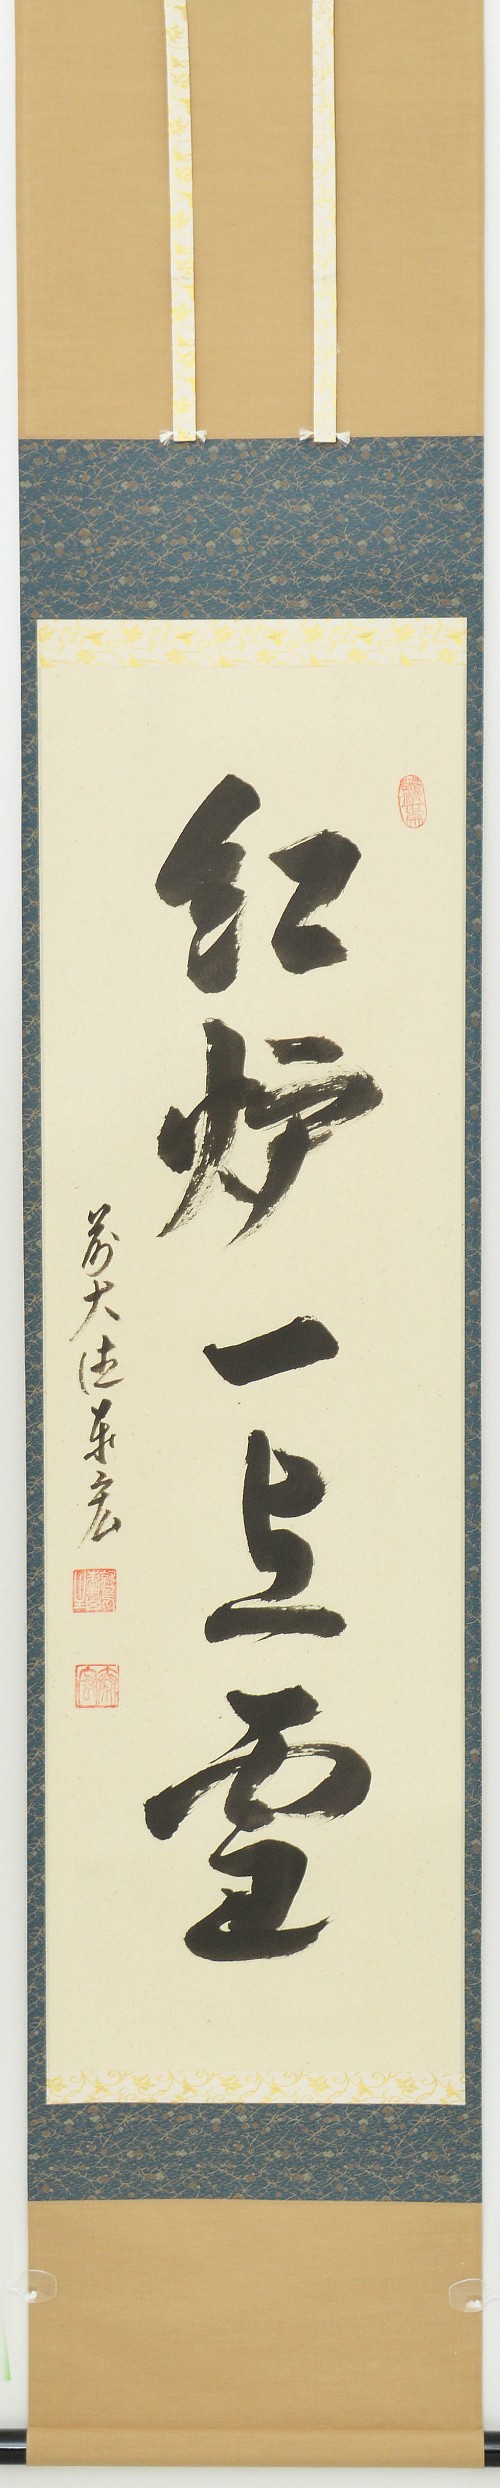 紅炉一点雪
前大徳